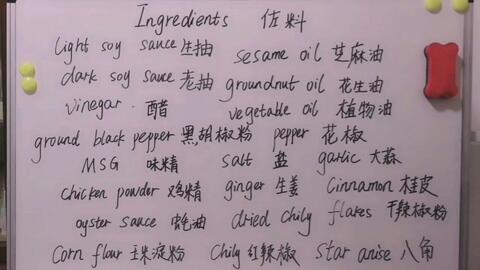 Ingredients 佐料
light soy sauce 生抽 sesame oil 芝麻油
dark soy sauce 老抽 groundnut oil 花生油
vinegar. 醋 vegetable oil 植物油
ground black pepper 黑胡椒粉 pepper 花椒
MSG 味精 salt 盐 garlic 大蒜
chicken powder 鸡精 ginger 生姜 Cinnamon 桂皮
oyster sauce 蚝油 dried chily flakes 干辣椒粉
Corn flour 玉米淀粉 Chily 红辣椒 Star anise 八角